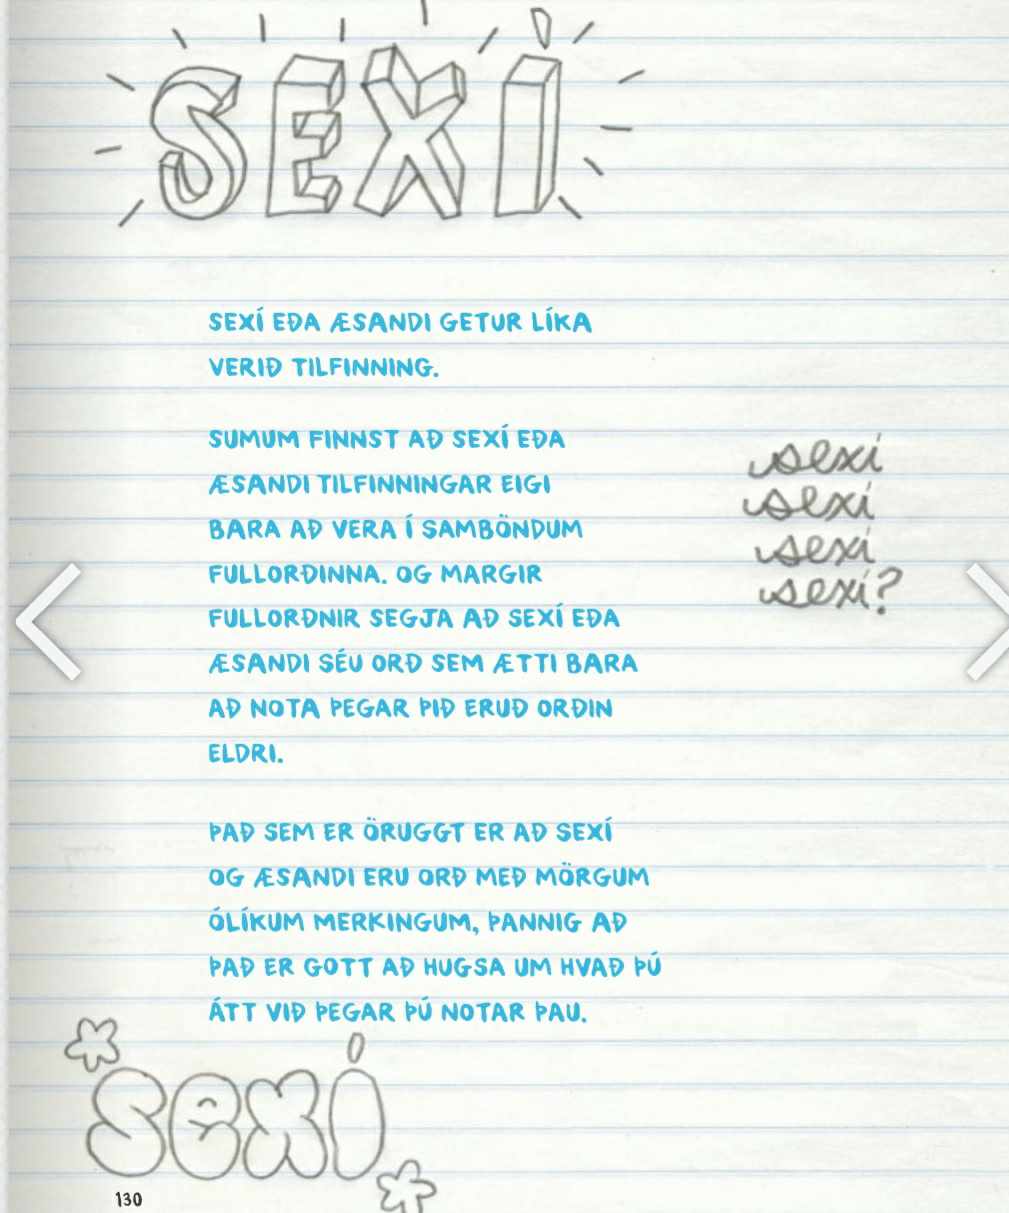 SEXÍ
SEXÍ EÐA ÆSANDI GETUR LÍKA
VERIÐ TILFINNING.
SUMUM FINNST AÐ SEXÍ EÐA
ÆSANDI TILFINNINGAR EIGI
BARA AÐ VERA Í SAMBÖNDUM
FULLORÐINNA. OG MARGIR
FULLORÐNIR SEGJA AÐ SEXÍ EÐA
ÆSANDI SÉU ORÐ SEM ÆTTI BARA
AÐ NOTA ÞEGAR ÞIÐ ERUÐ ORÐIN
ELDRI.
sexí
sexí
sexí
sexí?
ÞAÐ SEM ER ÖRUGGT ER AÐ SEXÍ
OG ÆSANDI ERU ORÐ MEÐ MÖRGUM
ÓLÍKUM MERKINGUM, ÞANNIG AÐ
ÞAÐ ER GOTT AÐ HUGSA UM HVAÐ ÞÚ
ÁTT VIÐ ÞEGAR ÞÚ NOTAR ÞAU.
sexí
130